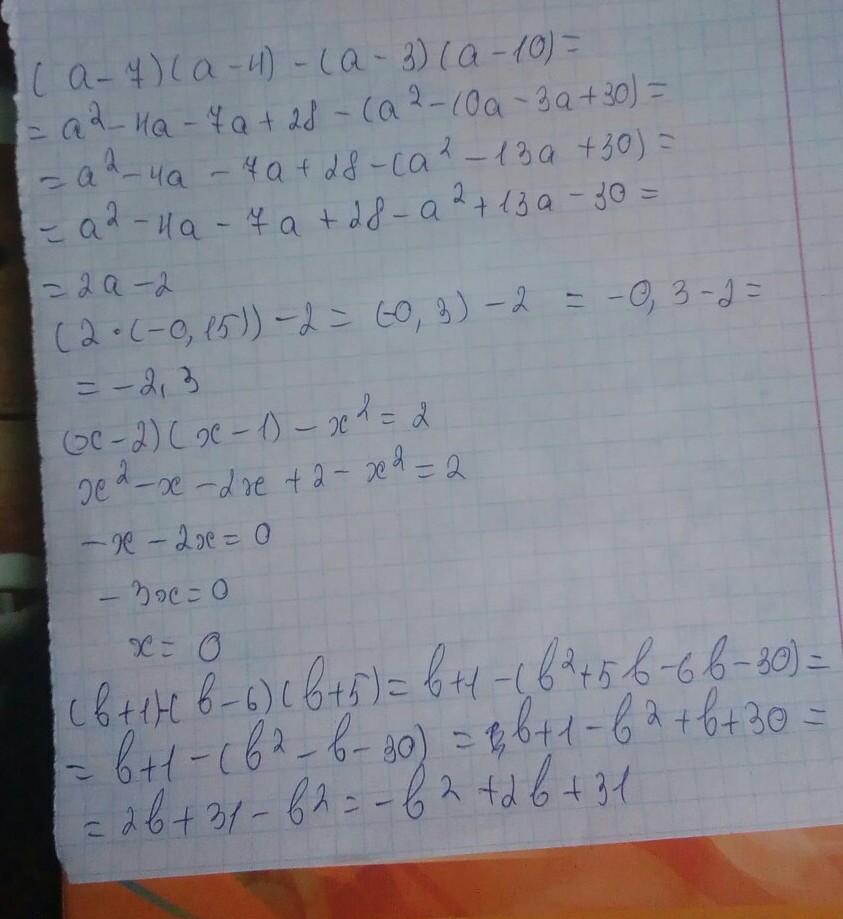 (a-7)(a-4)-(a-3)(a-10)=
=a²-4a-7a+28-(a²-10a-3a+30)=
=a²-4a-7a+28-(a²-13a+30)=
=a²-4a-7a+28-a²+13a-30=
=2a-2
(2·(-0,15))-2=(-0,3)-2=-0,3-2=
=-2,3
(x-2)(x-1)-x²=2
x²-x-2x+2-x²=2
-x-2x=0
-3x=0
x=0
(b+1)-(b-6)(b+5)=b+1-(b²+5b-6b-30)=
=b+1-(b²-b-30)=b+1-b²+b+30=
=2b+31-b²=-b²+2b+31